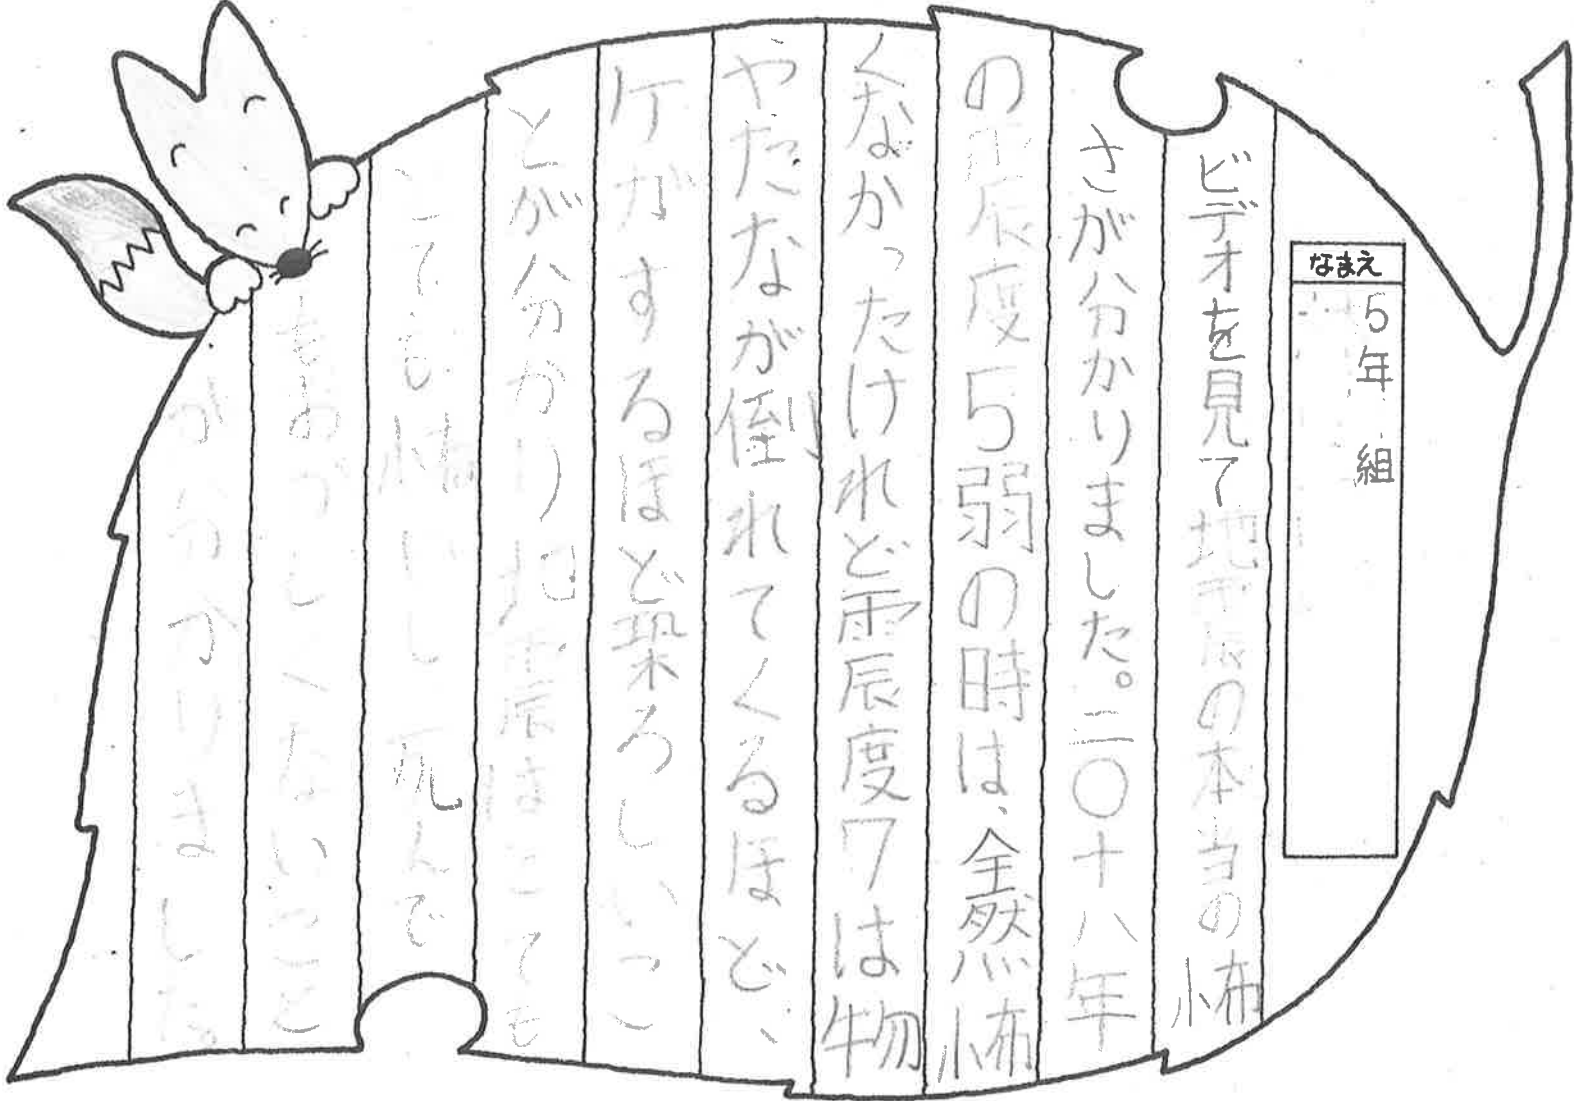 なまえ
5年 組
ビデオを見て地震の本当の怖
さが分かりました。二〇十八年
の震度5弱の時は、全然怖
くなかったけれど震度7は物
やたなが倒れてくるほど、
ケガするほど恐ろしいこ
とが分かり地震はとても
とても怖いし死んで
もおかしくないこと
が分かりました。